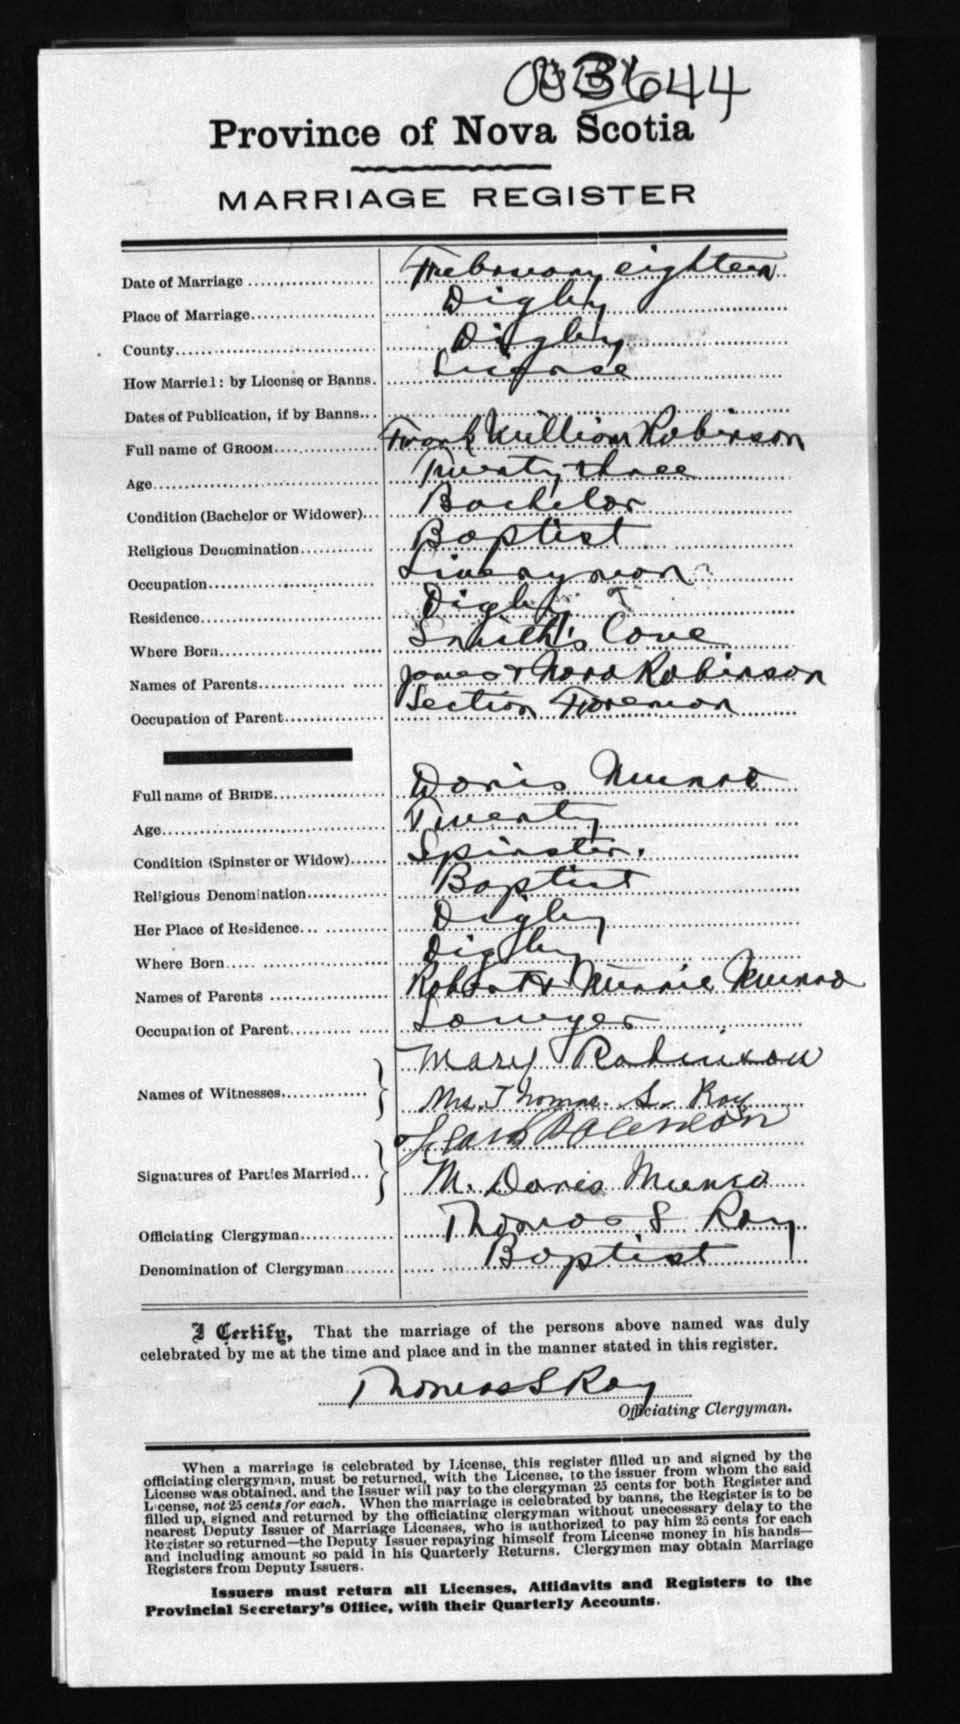 3644
Province of Nova Scotia
MARRIAGE REGISTER
Date of Marriage February eighteen
Place of Marriage Digby
County Digby
How Married: by License or Banns. License
Dates of Publication, if by Banns
Full name of GROOM Frank William Robinson
Age Twenty three
Condition (Bachelor or Widower) Bachelor
Religious Denomination Baptist
Occupation Liveryman
Residence Digby
Where Born Smith's Cove
Names of Parents James & Nora Robinson
Occupation of Parent Section Foreman
Full name of BRIDE Doris Munro
Age Twenty
Condition (Spinster or Widow) Spinster.
Religious Denomination Baptist
Her Place of Residence Digby
Where Born Digby
Names of Parents Robert & Minnie Munro
Occupation of Parent Lawyer
Names of Witnesses Mary Robinson
Mrs. Thomas S. Roy
Signatures of Parties Married Frank Robinson
M. Doris Munro
Officiating Clergyman Thomas S Roy
Denomination of Clergyman Baptist
I Certify, That the marriage of the persons above named was duly
celebrated by me at the time and place and in the manner stated in this register.
Thomas S Roy
Officiating Clergyman.
When a marriage is celebrated by License, this register filled up and signed by the
officiating clergyman, must be returned, with the License, to the issuer from whom the said
License was obtained, and the Issuer will pay to the clergyman 25 cents for both Register and
License, not 25 cents for each. When the marriage is celebrated by banns, the Register is to be
filled up, signed and returned by the officiating clergyman without unecessary delay to the
nearest Deputy Issuer of Marriage Licenses, who is authorized to pay him 25 cents for each
Register so returned—the Deputy Issuer repaying himself from License money in his hands—
and including amount so paid in his Quarterly Returns. Clergymen may obtain Marriage
Registers from Deputy Issuers.
Issuers must return all Licenses, Affidavits and Registers to the
Provincial Secretary's Office, with their Quarterly Accounts.